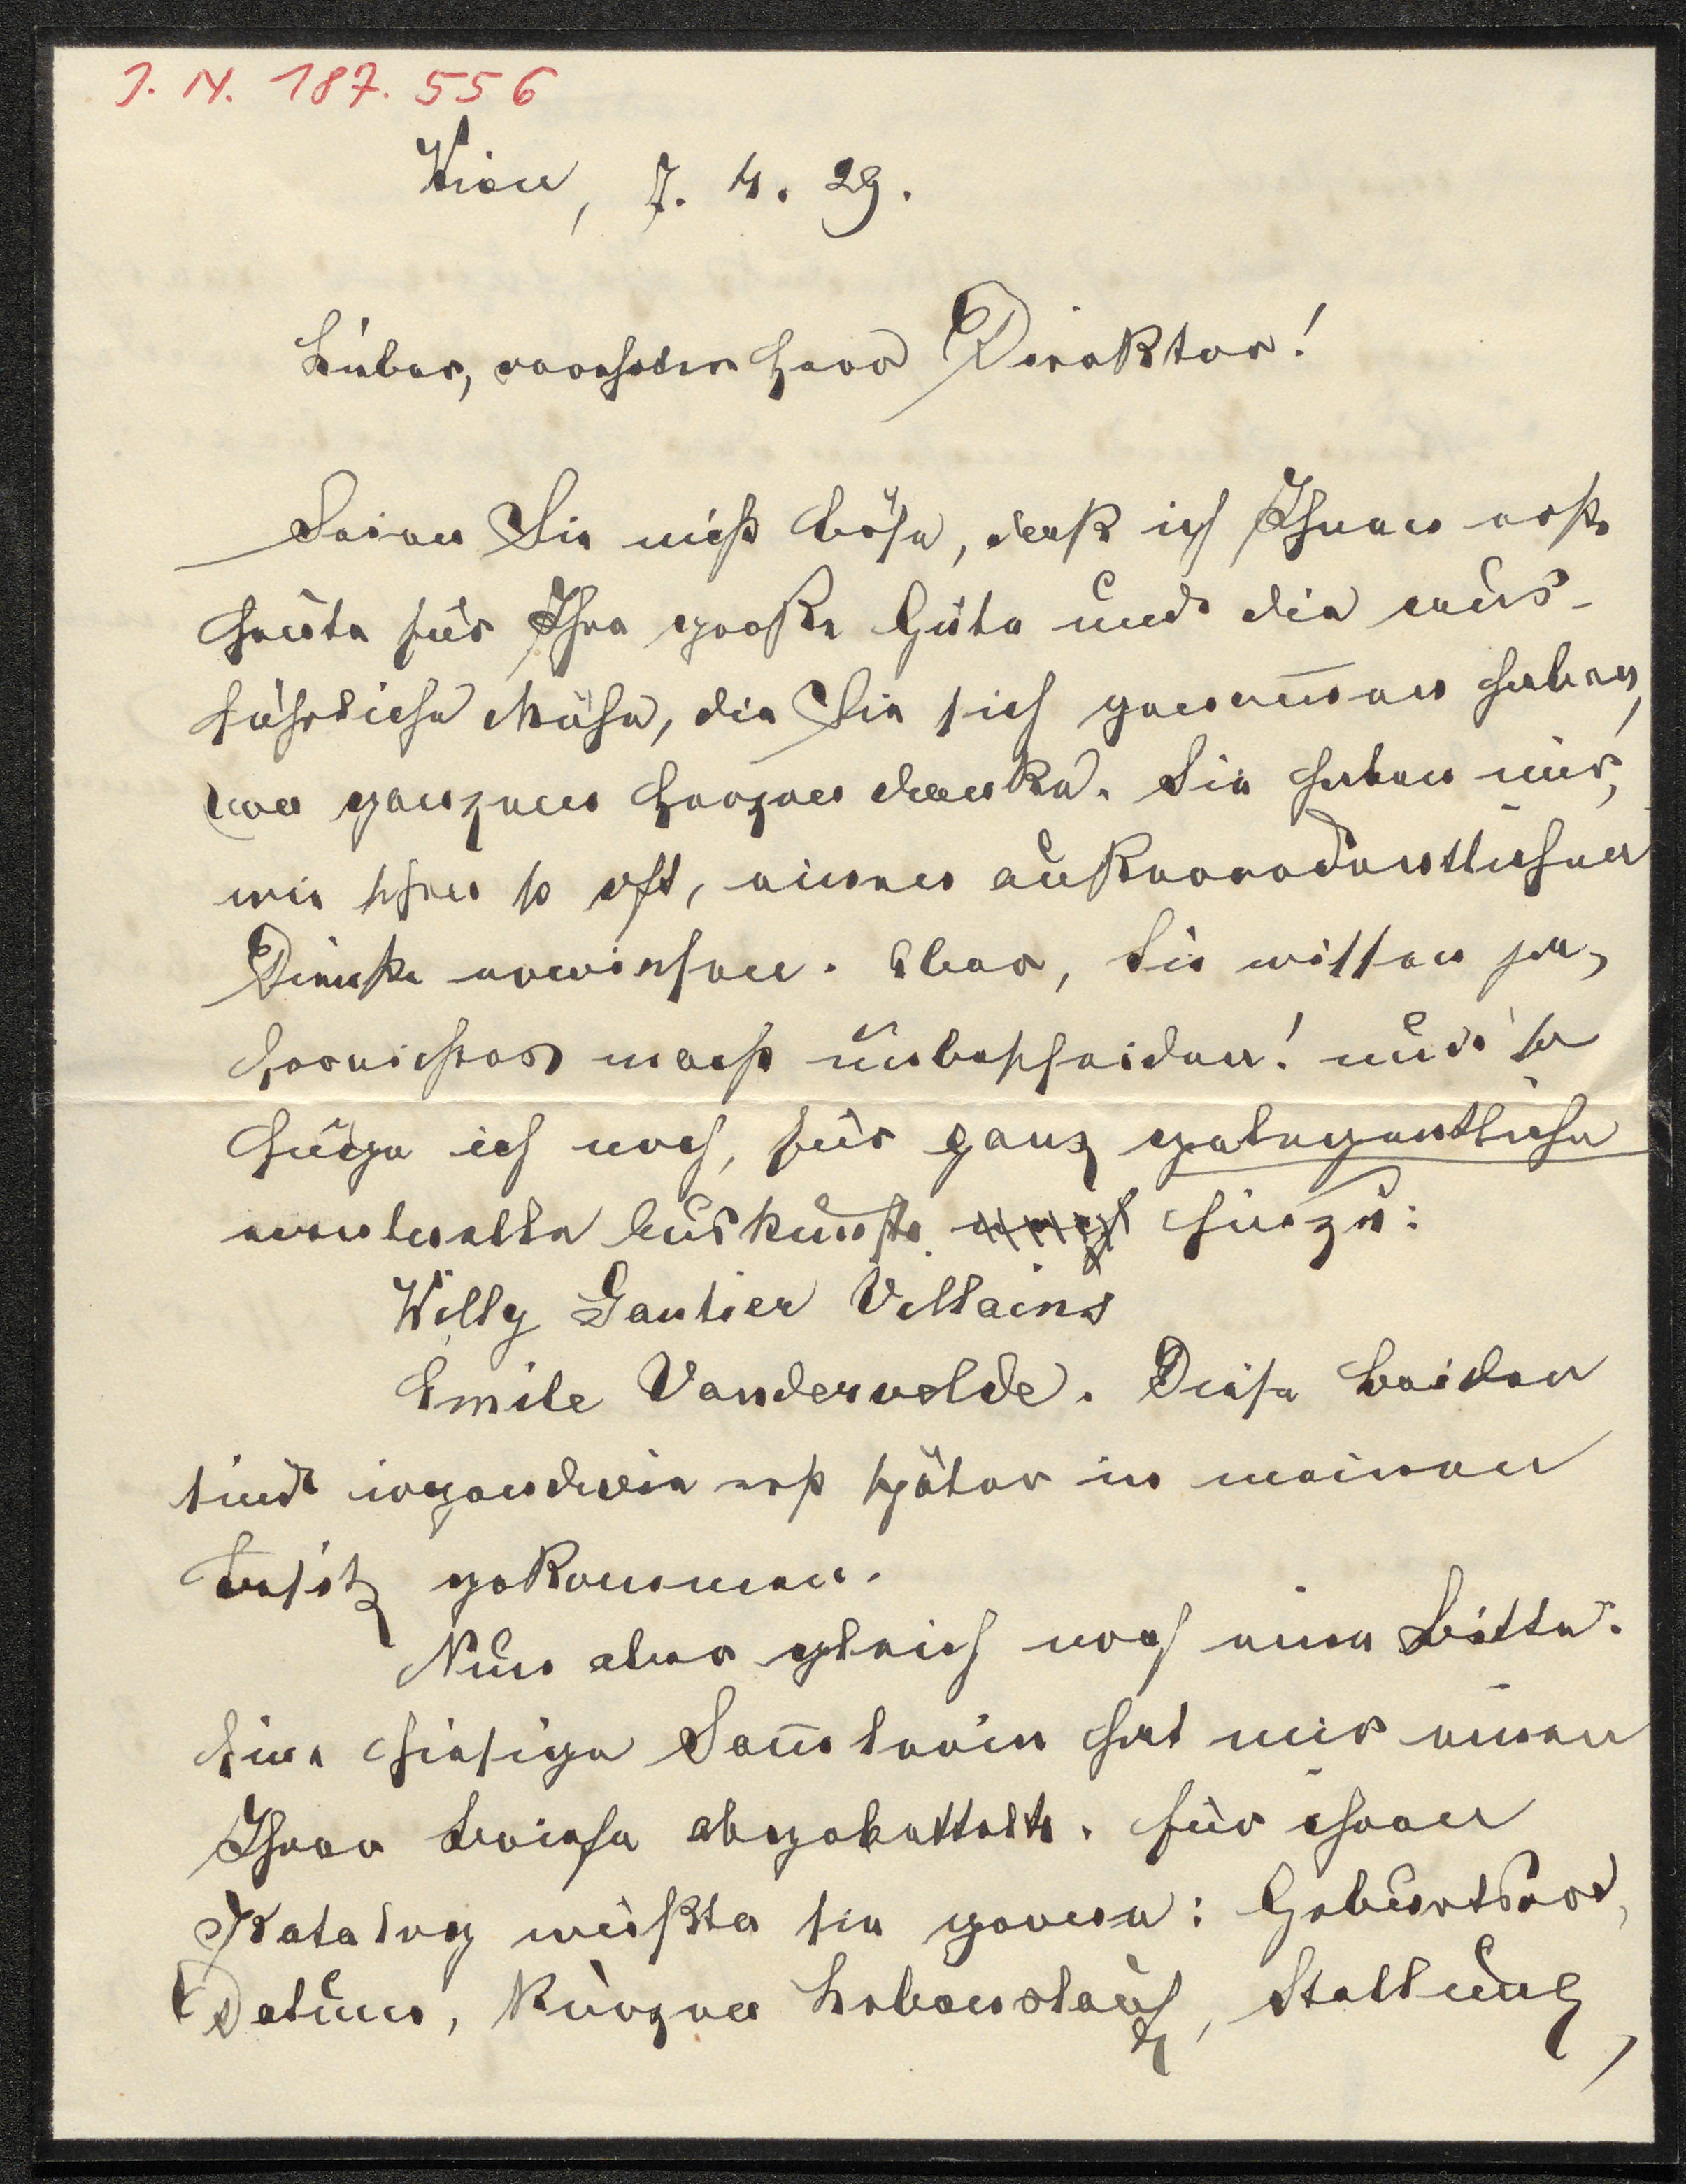 J. N. 187.556
Wien, 7. 4. 29.
Lieber, verehrter Herr Direktor!
Seien Sie nicht böse, daß ich Ihnen erst
heute für Ihre große Güte und die aus-
führliche Mühe, die Sie sich genommen haben,
von ganzem Herzen danke. Sie haben mir,
wie schon so oft, einen außerordentlichen
Dienst erwiesen. Aber, Sie wissen ja,
Herrichter macht unbescheiden! und so
füge ich noch, für ganz gelegentliche
eventuelle Auskunft hinzu:
Willy Gautier Villains
Emile Vandervelde. Diese beiden
sind irgendwie erst später in meinen
Besitz gekommen.
Nun aber gleich noch eine Bitte.
Eine hiesige Sammlerin hat mir einen
Ihrer Briefe abgebettelt. Für ihren
Katalog wüßte sie gerne: Geburtsort,
Datum, kurzen Lebenslauf, Stellung,